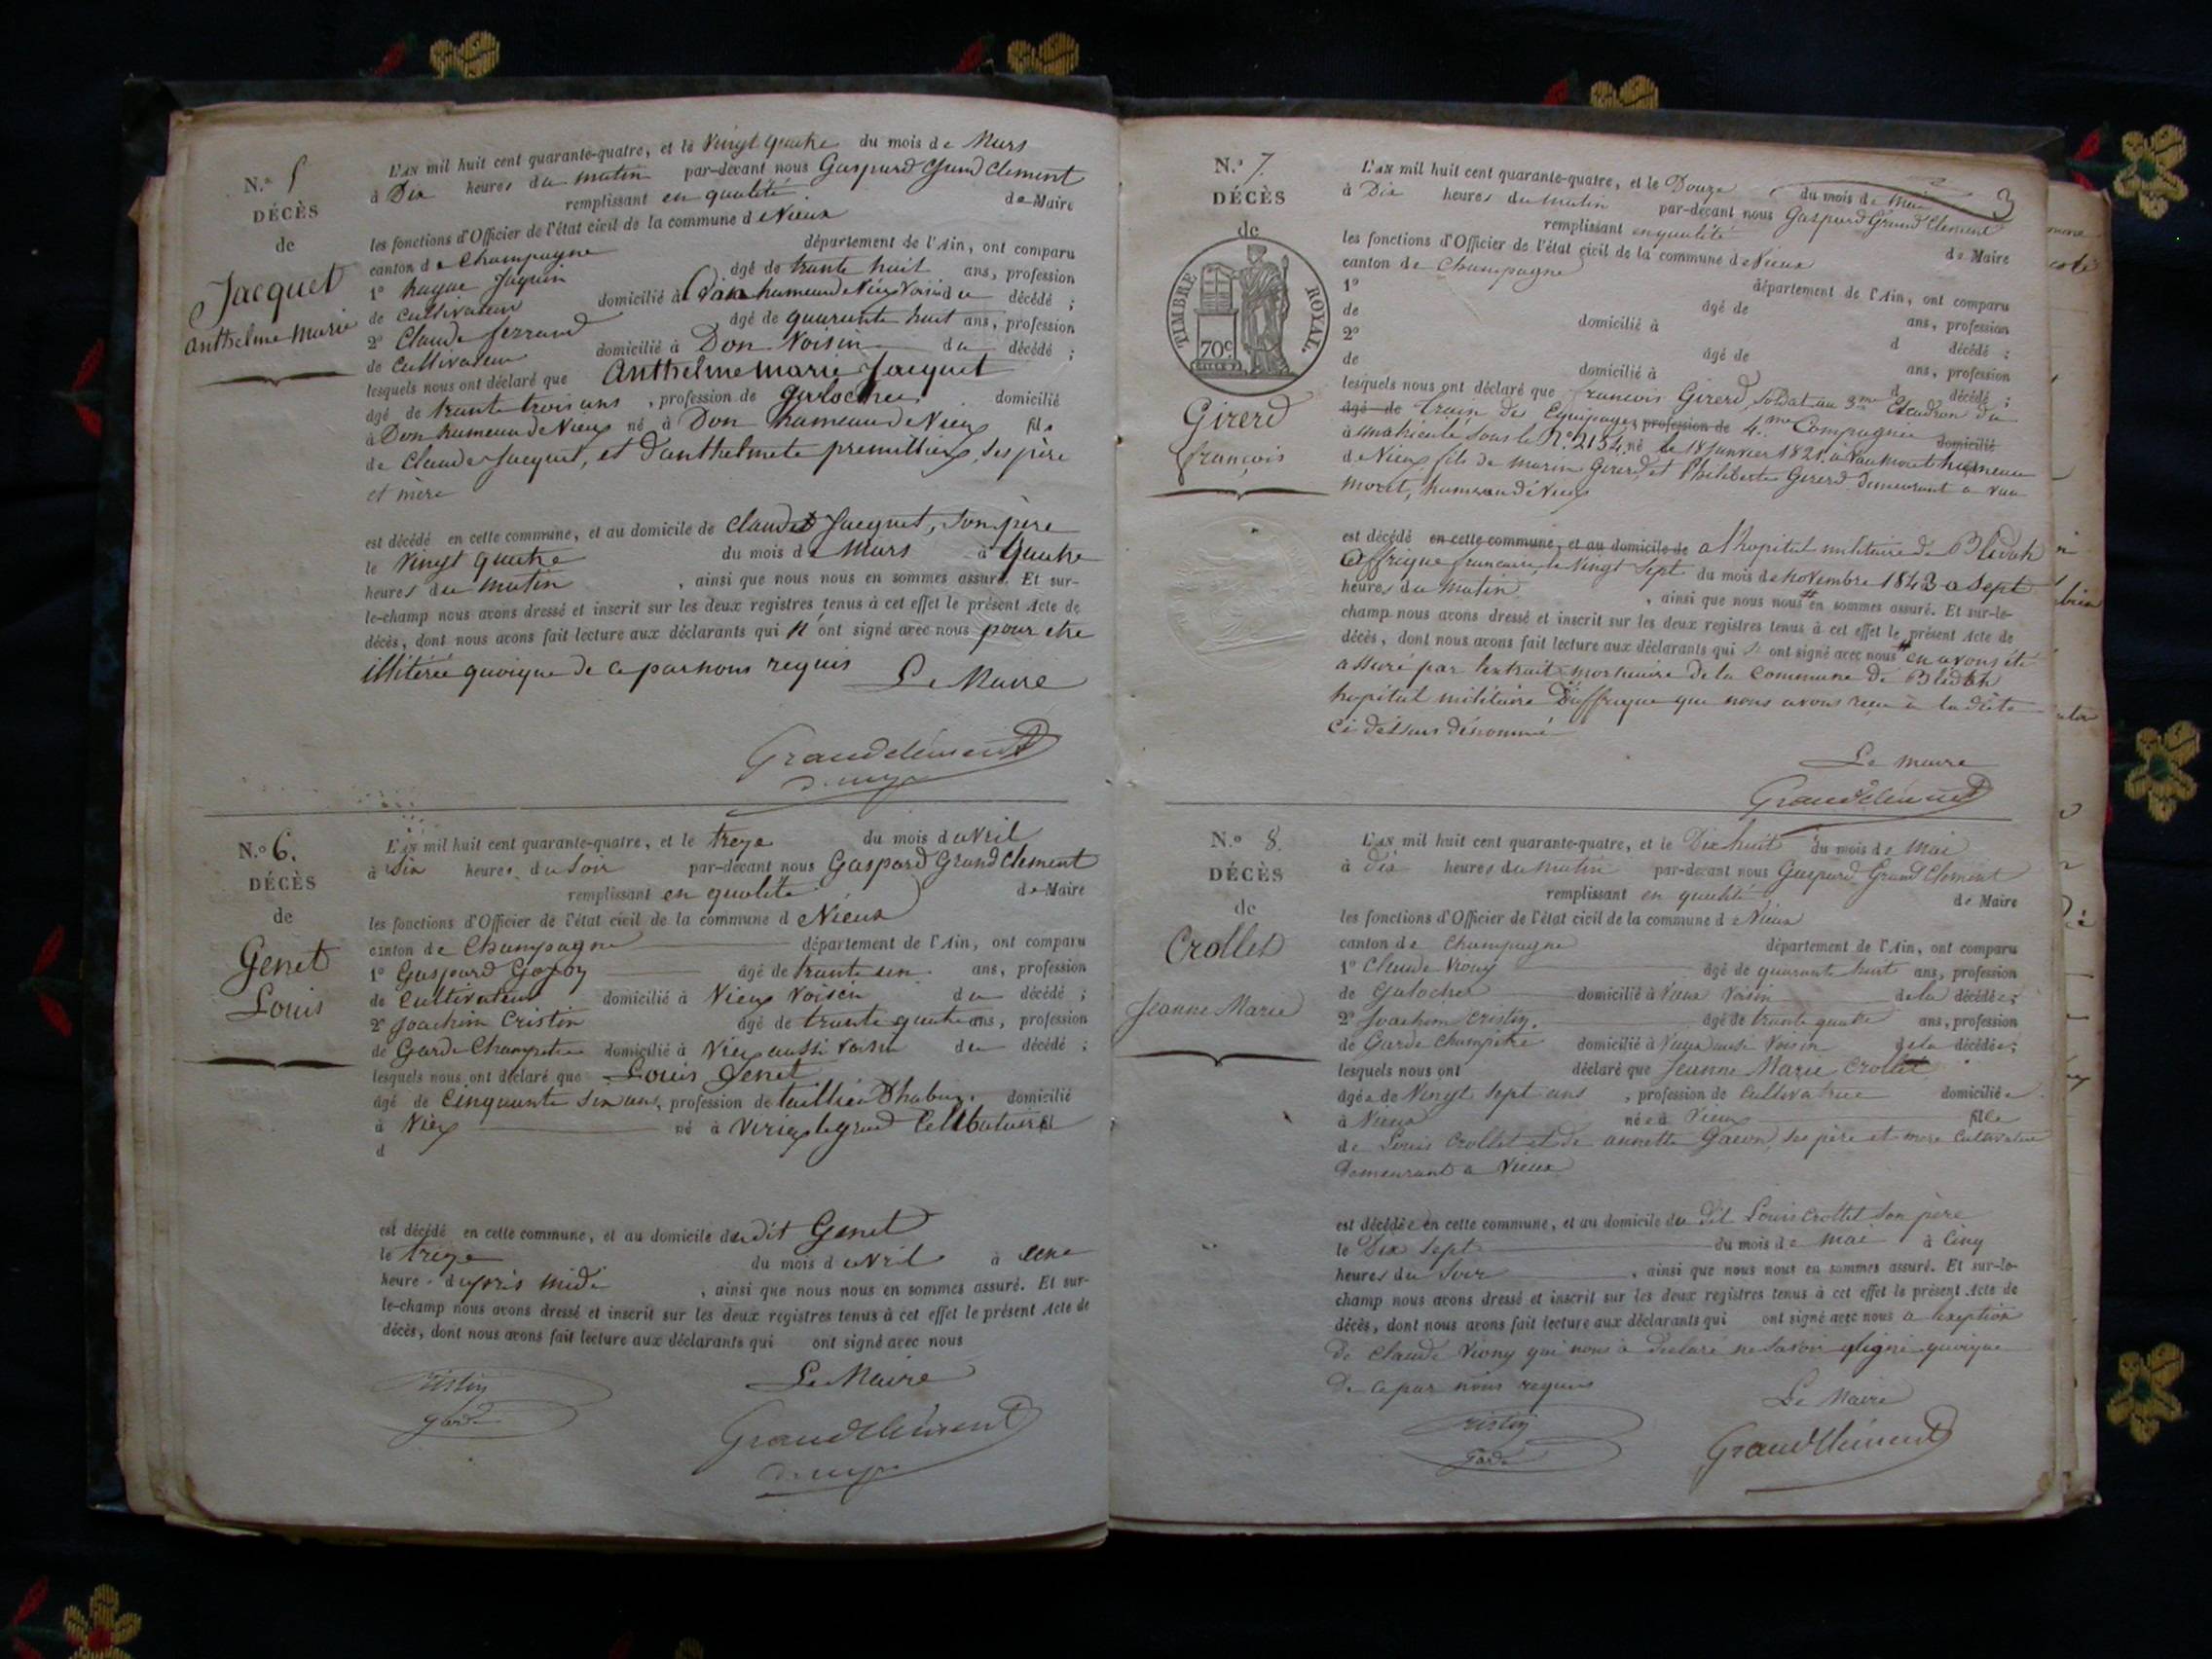 N.° 5
DÉCÈS
de
Jacquet
Anthelme Marie
L'AN mil huit cent quarante-quatre, et le Vingt quatre du mois de Mars
à Dix heures du matin par-devant nous Gaspard Grand Clement
remplissant en qualité de Maire
les fonctions d'Officier de l'état civil de la commune de Vieux
canton de Champagne département de l'Ain, ont comparu
1° âgé de trante huit ans, profession
de Cultivateur domicilié à Don hameau de Vieux Voisin du décédé ;
2° Claude ferrand âgé de quarante huit ans, profession
de Cultivateur domicilié à Don Voisin du décédé ;
lesquels nous ont déclaré que Anthelme marie Jacquet
âgé de trante trois ans , profession de domicilié
à Don hameau de Vieux né à Don hameau de Vieux fils
de Claude Jacquet, et d'anthelmete premillieux, ses père
et mère
est décédé en cette commune, et au domicile de Claude Jacquet, son père
le Vingt quatre du mois de Mars à quatre
heures du matin , ainsi que nous nous en sommes assuré. Et sur-
le-champ nous avons dressé et inscrit sur les deux registres tenus à cet effet le présent Acte de
décès, dont nous avons fait lecture aux déclarants qui n'ont signé avec nous pour etre
illitéré quoique de ce par nous requis Le Maire
Grandclément
N.° 6.
DÉCÈS
de
Genet
Louis
L'AN mil huit cent quarante-quatre, et le treze du mois d'avril
à Six heures du Soir par-devant nous Gaspard Grand Clement
remplissant en qualité de Maire
les fonctions d'Officier de l'état civil de la commune de Vieux
canton de Champagne département de l'Ain, ont comparu
1° Gaspard âgé de trante un ans, profession
de Cultivateur domicilié à Vieux Voisin du décédé ;
2° Joachim Cristin âgé de trante quatre ans, profession
de Garde Champetre domicilié à Vieux aussi Voisin du décédé ;
lesquels nous ont déclaré que Louis Genet
âgé de Cinquante six ans, profession de domicilié
à Vieux né à Virieu le grand Celibataire fil
d
est décédé en cette commune, et au domicile du dit Genet
le treze du mois d'avril à une
heure d'après midi , ainsi que nous nous en sommes assuré. Et sur-
le-champ nous avons dressé et inscrit sur les deux registres tenus à cet effet le présent Acte de
décès, dont nous avons fait lecture aux déclarants qui ont signé avec nous
Cristin
garde
Le Maire
Grandclément
N.° 7.
DÉCÈS
de
TIMBRE ROYAL.
70c.
Girerd
françois
3
L'AN mil huit cent quarante-quatre, et le Douze du mois de Mai
à Dix heures du matin par-devant nous Gaspard Grand Clement
remplissant en qualité de Maire
les fonctions d'Officier de l'état civil de la commune de Vieux
canton de Champagne département de l'Ain, ont comparu
1° âgé de ans, profession
de domicilié à d décédé ;
2° âgé de ans, profession
de domicilié à d décédé ;
lesquels nous ont déclaré que francois Girerd, Soldat au 3me Escadron du
âgé de train des Equipages profession de 4me Compagnie domicilié
à matriculé sous le N° 2154 né le 18 janvier 1821 à hameau
de Vieux fils de marin Girerd, et Philiberte Girerd demeurant a vau
moret, hameau de Vieux
est décédé en cette commune, et au domicile de a l'hopital militaire de Blidah
affrique francaise, le Vingt Sept du mois de Novembre 1843 a Sept
heures du matin , ainsi que nous nous # en sommes assuré. Et sur-le-
champ nous avons dressé et inscrit sur les deux registres tenus à cet effet le présent Acte de
décès, dont nous avons fait lecture aux déclarants qui ont signé avec nous # en avons été
assuré par l'extrait mortuaire de la Commune de Blidah
hopital militaire d'affrique que nous avons recu à la date
ci dessus dénommé
Le maire
Grandclément
N.° 8.
DÉCÈS
de
Crollet
Jeanne Marie
L'AN mil huit cent quarante-quatre, et le Dix huit du mois de Mai
à dix heures du matin par-devant nous Gaspard Grand Clement
remplissant en qualité de Maire
les fonctions d'Officier de l'état civil de la commune de Vieux
canton de Champagne département de l'Ain, ont comparu
1° Claude Viony âgé de quarante huit ans, profession
de Galocher domicilié à Vieux Voisin de la décédée ;
2° Joachim Cristin. âgé de trante quatre ans, profession
de Garde Champetre domicilié à Vieux aussi Voisin de la décédée ;
lesquels nous ont déclaré que Jeanne Marie Crollet
âgée de Vingt Sept ans , profession de Cultivatrice domiciliée
à Vieux née à Vieux fille
de Louis Crollet et de annette ses père et mere Cultivateur
Demeurant a Vieux
est décédée en cette commune, et au domicile du dit Louis Crollet son père
le Dix Sept du mois de mai à Cinq
heures du Soir , ainsi que nous nous en sommes assuré. Et sur-le-
champ nous avons dressé et inscrit sur les deux registres tenus à cet effet le présent Acte de
décès, dont nous avons fait lecture aux déclarants qui ont signé avec nous a lexeption
de Claude Viony qui nous a declaré ne savoir signé quoique
de ce par nous requis
Le Maire
Cristin
Garde
Grandclément